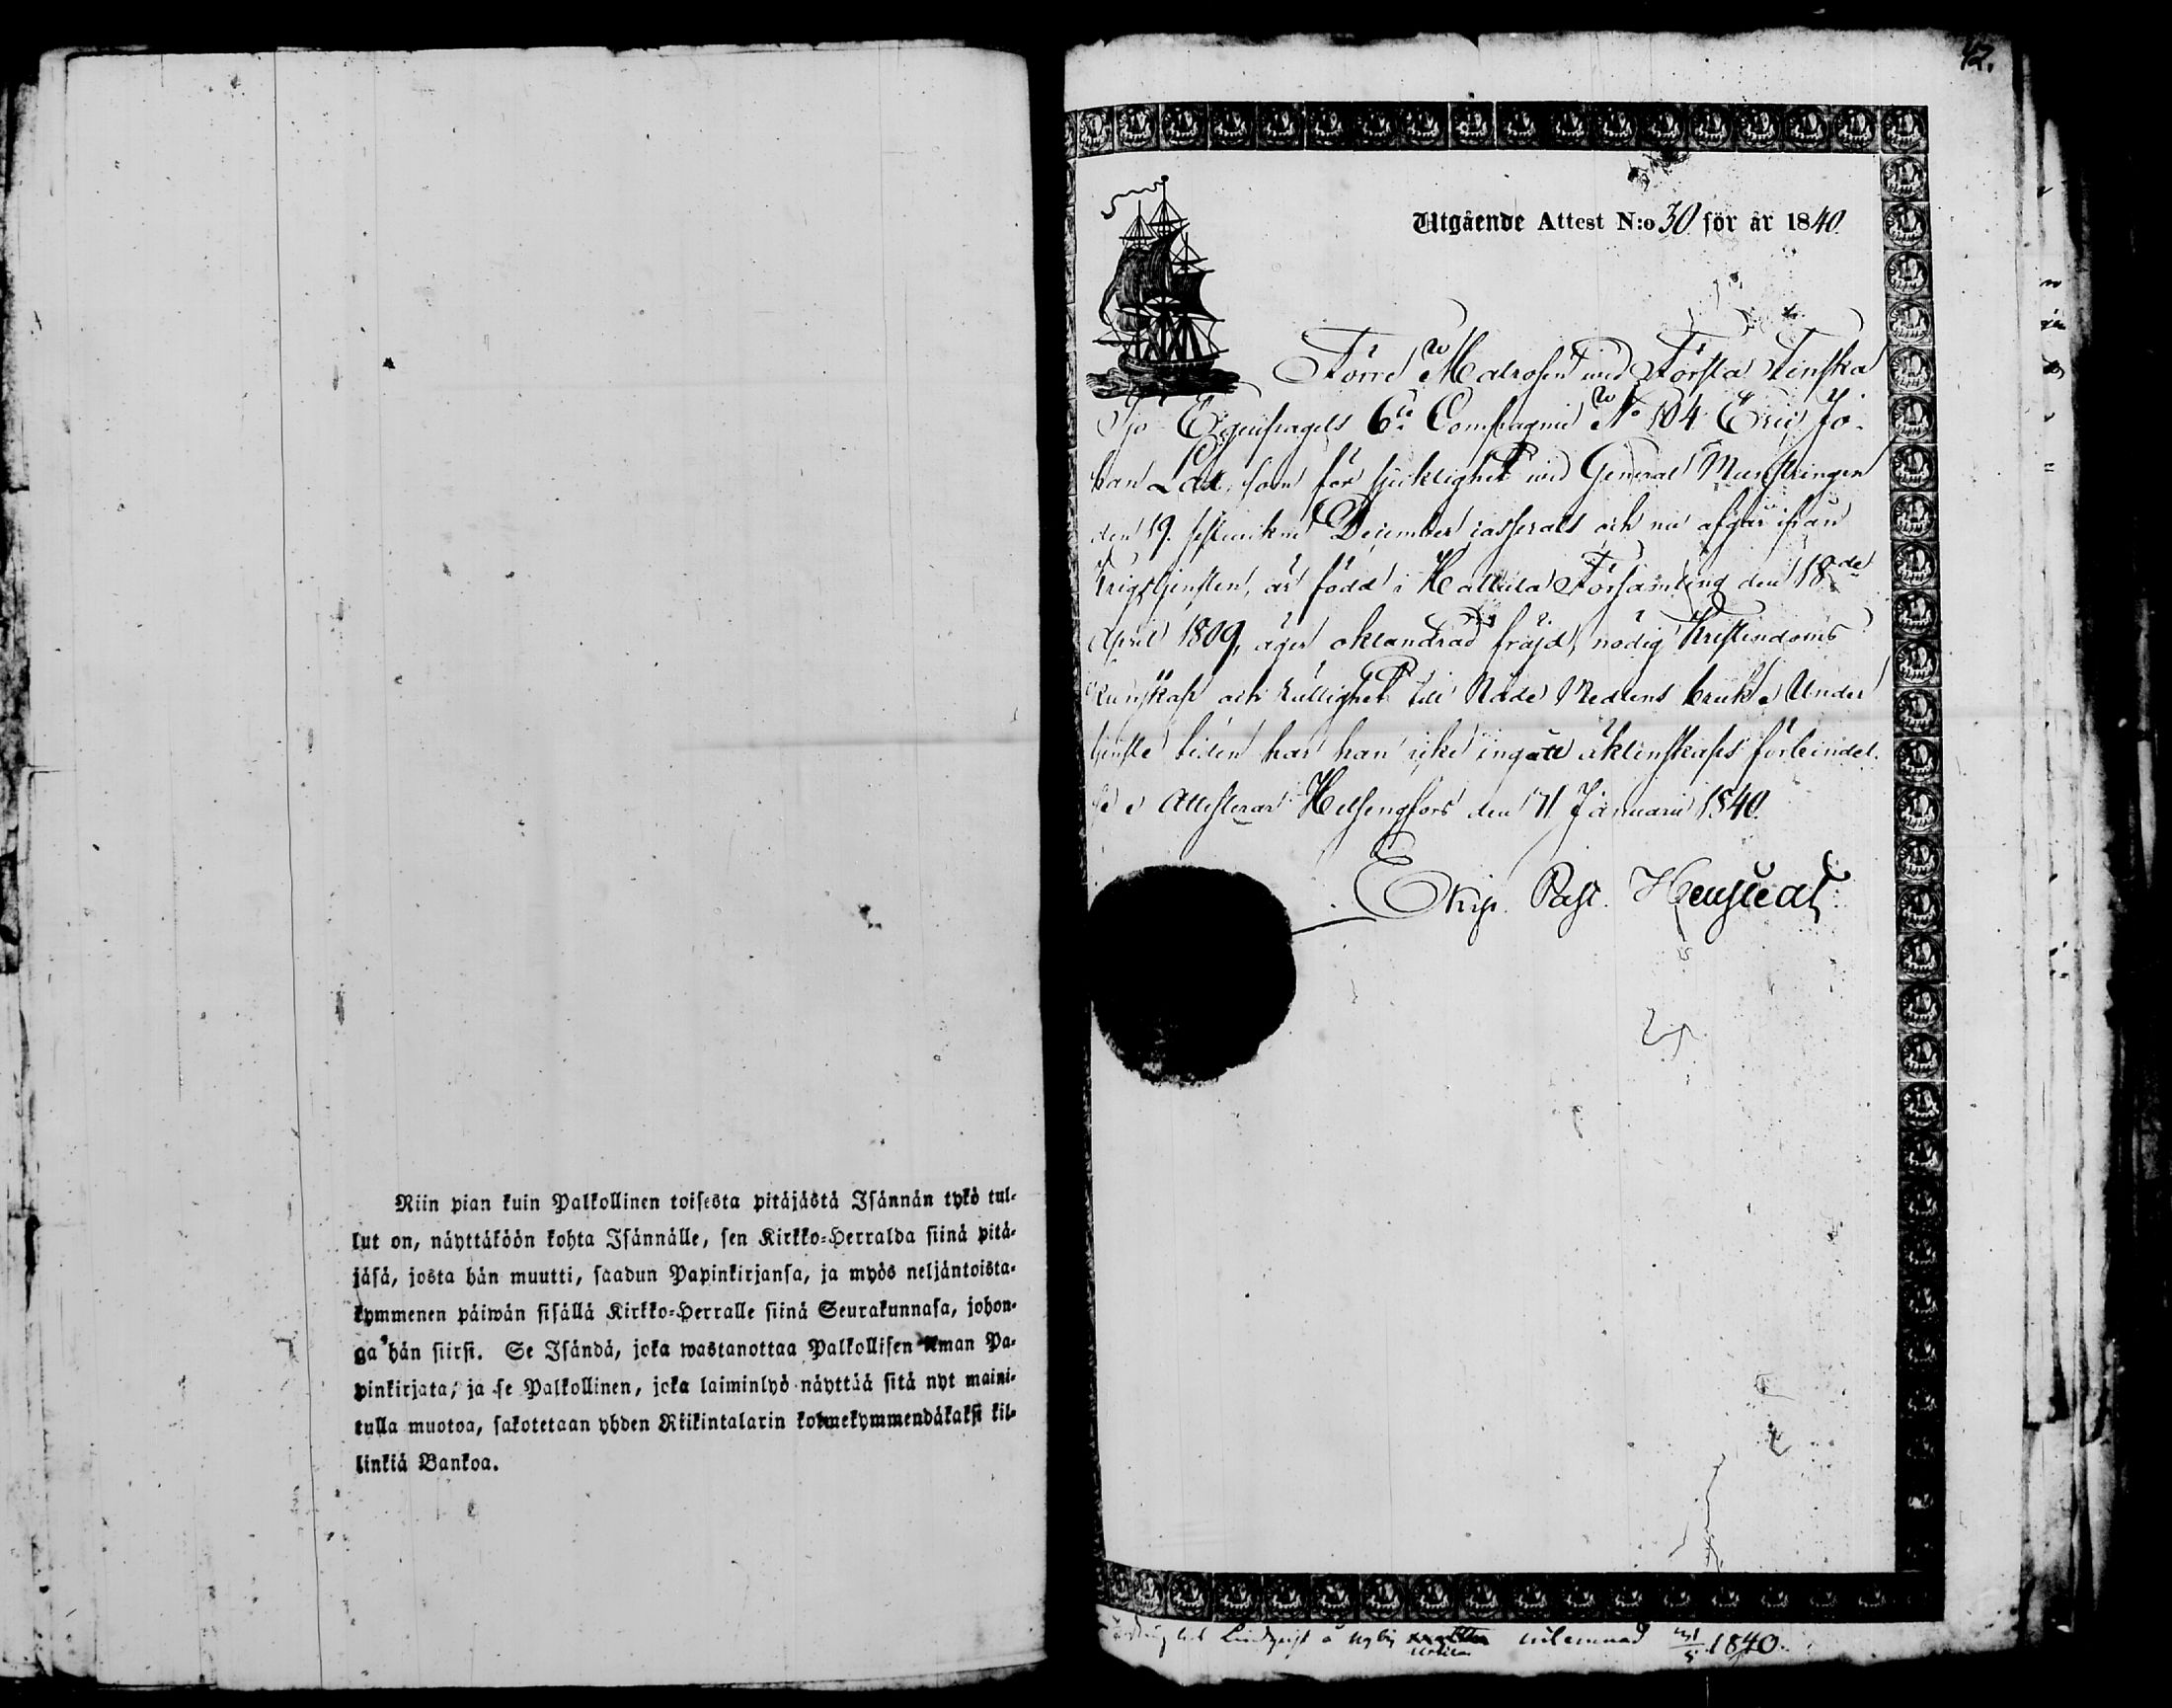 Niin pian kuin Palkollinen toisesta pitäjästä Isännän tykö tul-
lut on, näyttäköön kohta Isännälle, sen Kirkko-Herralda siinä pitä-
jäsä, josta hän muutti, saadun Papinkirjansa, ja myös neljäntoista-
kymmenen päiwän sisällä Kirkko-Herralle siinä Seurakunnasa, johon-
ga hän siirsi. Se Isändä, joka wastanottaa Palkollisen ilman Pa-
pinkirjata, ja se Palkollinen, joka laiminlyö näyttää sitä nyt maini-
tulla muotoa, sakotetaan yhden Riikintalarin kolmekymmendäkaksi kil-
linkiä Bankoa.
42.
Utgående Attest N:o 30 för år 1840
Förre Matrosen wid Första Finska
Sjö Equipagets 6te Compagnie No 104 Eric Jo-
han Lax, som för sjuklighet wid General Munstringen
den 19. sistwikne December casserats och nu afgår ifrån
Krigstjensten, är född i Hattula Församling den 18de
April 1809, äger oklandrad fräjd, nödig Kristendoms
kunskap och tillighet till Nåde Medlens bruk. Under
tjenste tiden har han icke ingått äktenskaps förbindel-
se. Attesterar Helsingfors den 71 Januarii 1840.
Ekip. Past.
Lindqvist å Nyby inlemnad 1840.